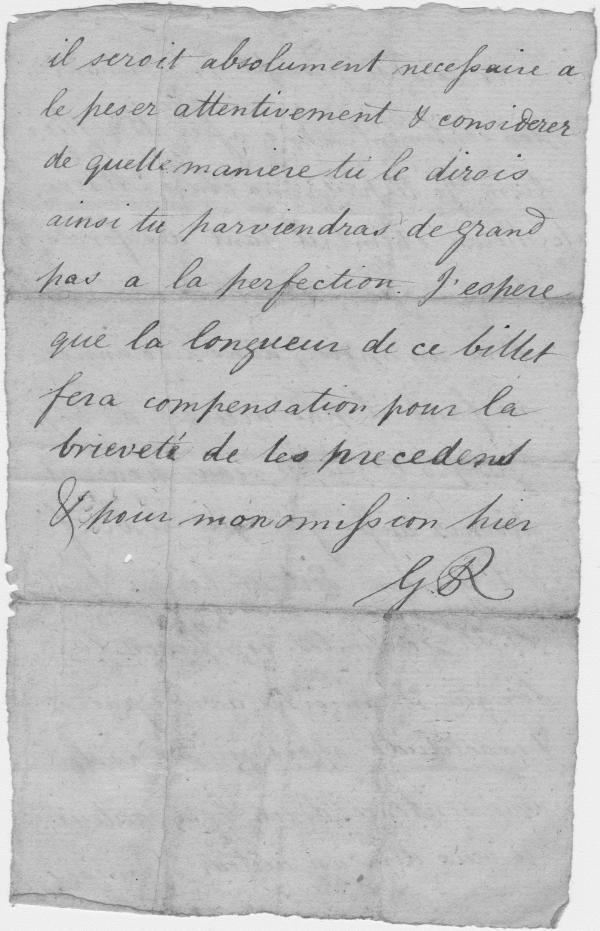 il seroit absolument necessaire a
le peser attentivement & considerer
de quelle maniere tu le dirois
ainsi tu parviendras de grand
pas a la perfection. J'espere
que la longueur de ce billet
fera compensation pour la
brieveté de les precedens
& pour mon omission hier
G.R